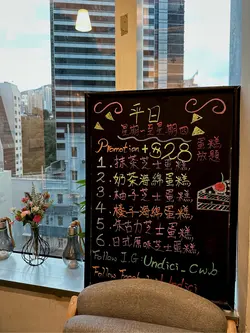 平日
星期一至星期四
Promotion +$28 蛋糕放題
1. 抹茶芝士蛋糕,
2. 奶茶海綿蛋糕,
3. 柚子芝士蛋糕,
4. 千海綿蛋糕,
5. 朱古力芝士蛋糕,
6. 日式原味芝士蛋糕,
Follow I.G: Undici_cwb
Follow